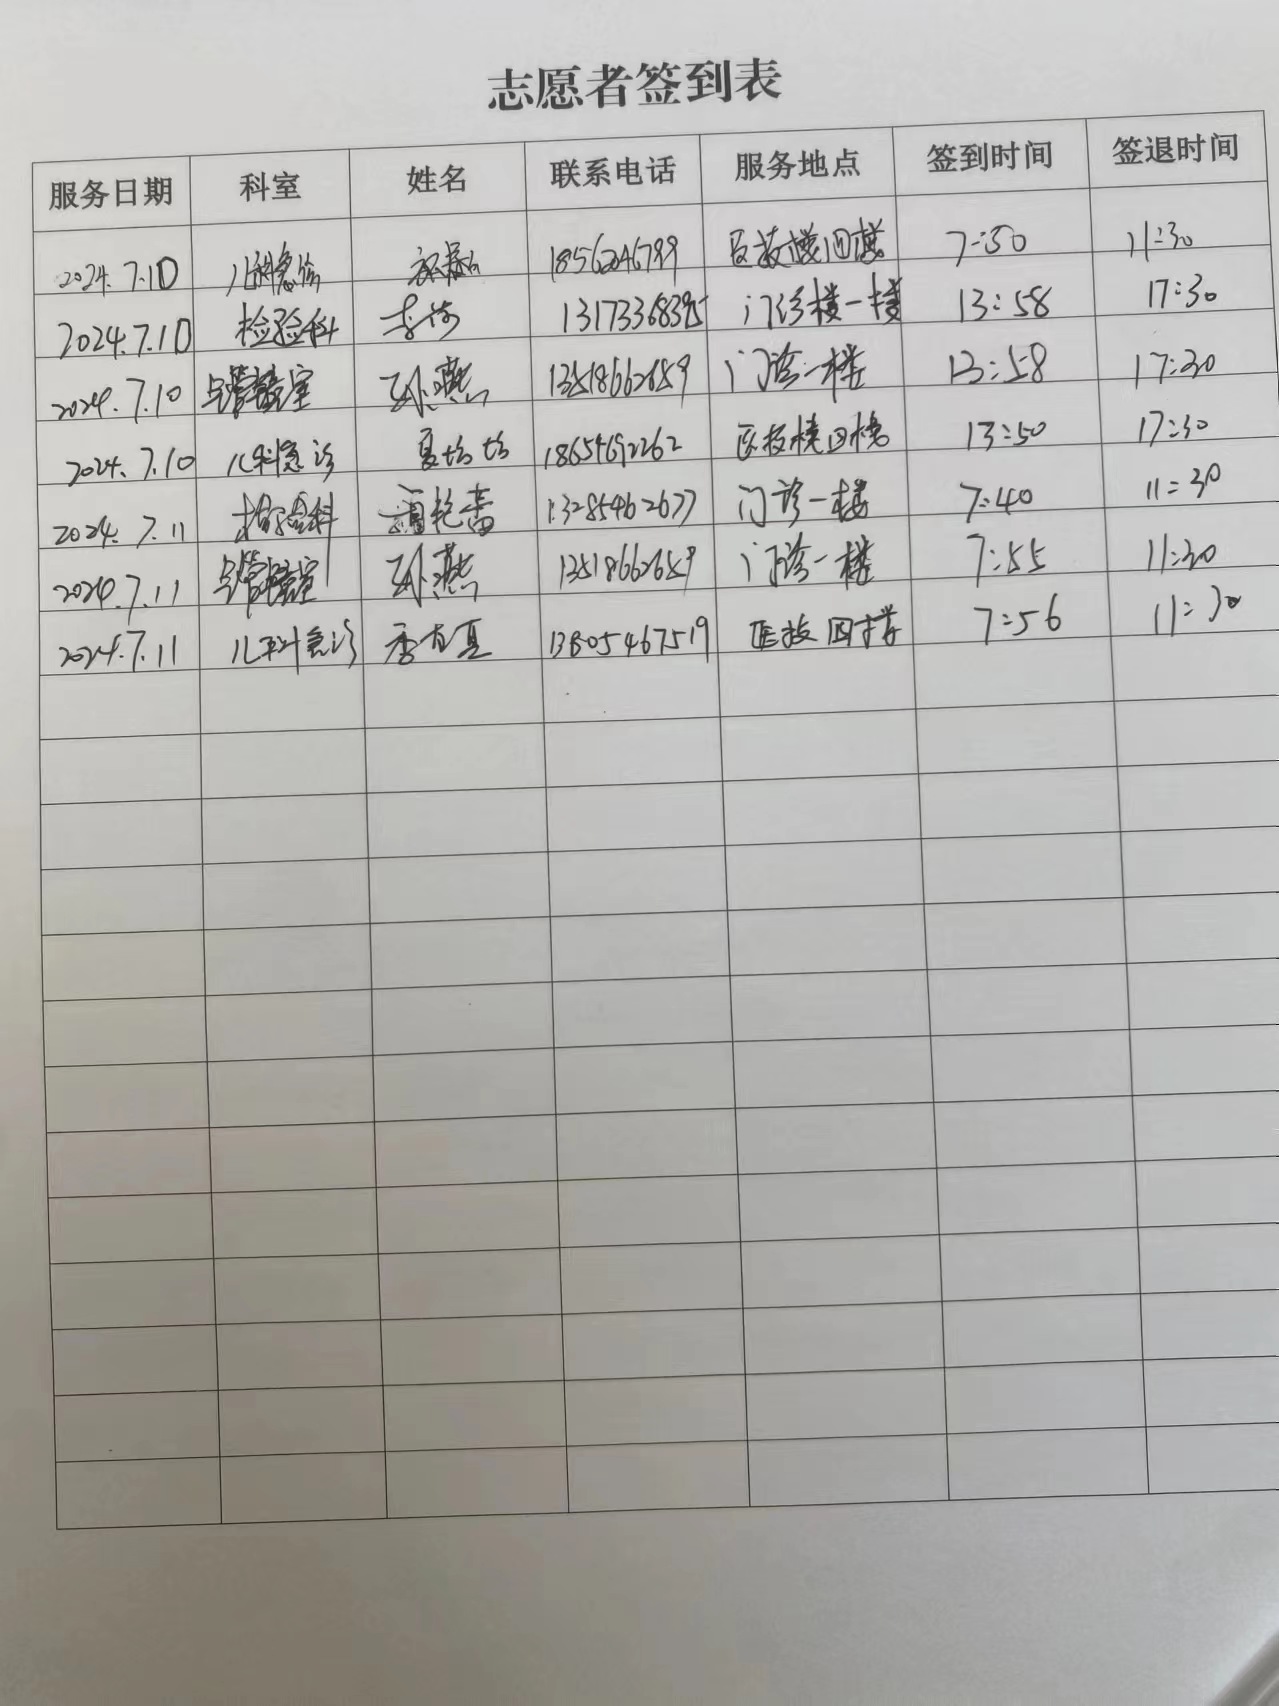 志愿者签到表
服务日期 科室 姓名 联系电话 服务地点 签到时间 签退时间
2024.7.10 儿科急诊 18562046799 医技楼四楼 7:50 11:30
2024.7.10 检验科 李倩 13173368395 门诊楼一楼 13:58 17:30
2024.7.10 孙燕 13518662659 门诊一楼 13:58 17:30
2024.7.10 儿科急诊 夏坊坊 18654692262 医技楼四楼 13:50 17:30
2024.7.11 检验科 13285462677 门诊一楼 7:40 11:30
2024.7.11 孙燕 13518662659 门诊一楼 7:55 11:30
2024.7.11 儿科急诊 13805467519 医技四楼 7:56 11:30